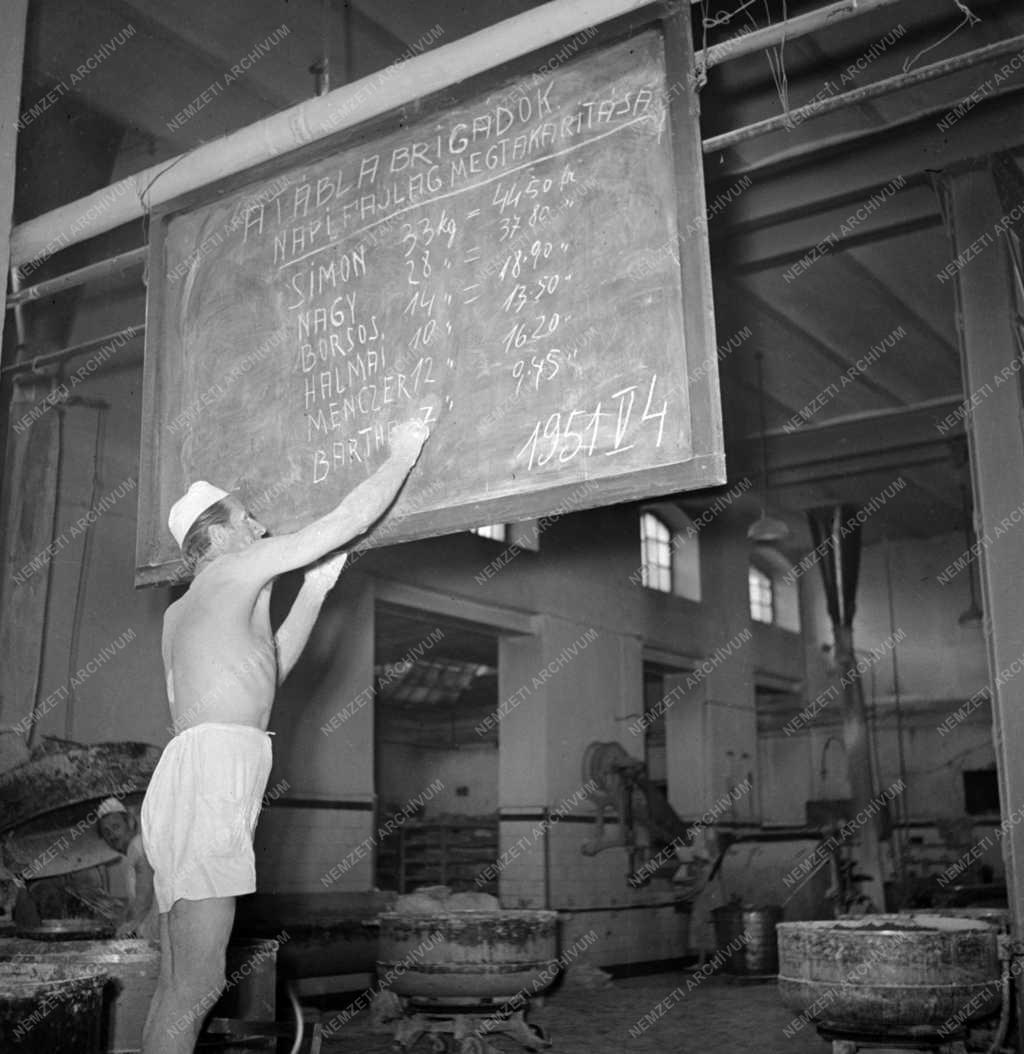 A TÁBLA BRIGÁDOK
NAPI FAJLAG MEGTAKARITÁSA
SIMON 33 kg = 44.50 fr
NAGY 28 " = 37.80 "
BORSOS. 14 " = 18.90 "
HALMAI 10 " 13.50 "
MENCZER 12 " 16.20 "
BARTHA 7 " 9.45 "
1951 V 4
NEMZETI ARCHÍVUM